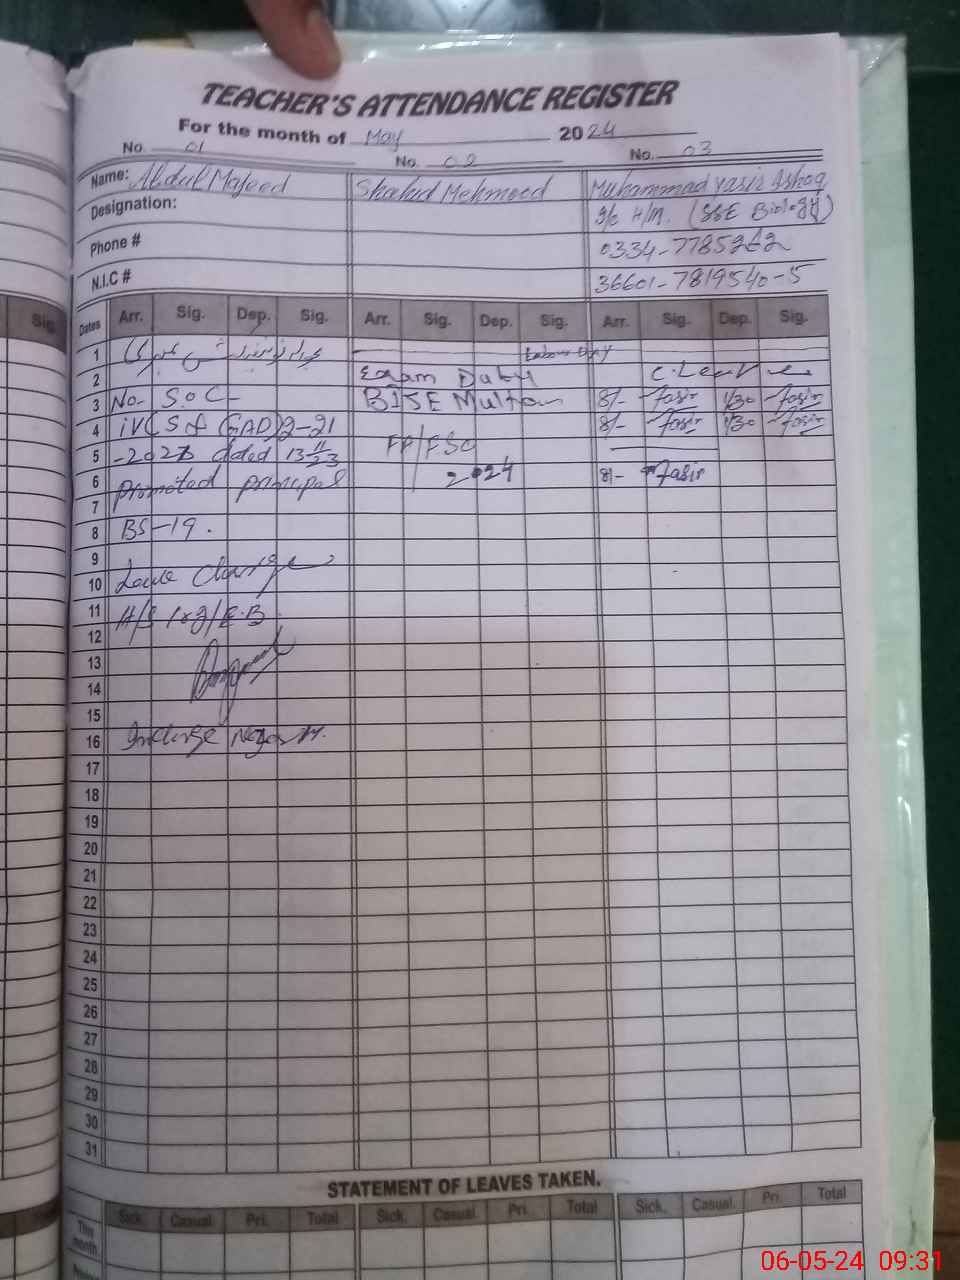 TEACHER'S ATTENDANCE REGISTER
For the month of May 2024
No. 01 No. 02 No. 03
Name: Abdul Majeed Shahid Mehmood Muhammad Yasir Ashaq
Designation: I/c H/M. (SSE Biology)
Phone # 0334-7785262
N.I.C # 36601-7819540-5
Sig.
Dates Arr. Sig. Dep. Sig. Arr. Sig. Dep. Sig. Arr. Sig. Dep. Sig.
1 Labour Day
2 Exam Duty C. Leave
3 No- S.O.C- BISE Multan 8/- Yasir 1/30 Yasir
4 8/- Yasir 1/30 Yasir
5 dated FA/FSc
6 promoted principal 2024 8/- Yasir
7
8 BS-19.
9
10
11
12
13
14
15
16
17
18
19
20
21
22
23
24
25
26
27
28
29
30
31
STATEMENT OF LEAVES TAKEN.
Sick. Casual. Pri. Total Sick. Casual. Pri. Total Sick. Casual. Pri. Total
This month.
06-05-24 09:31